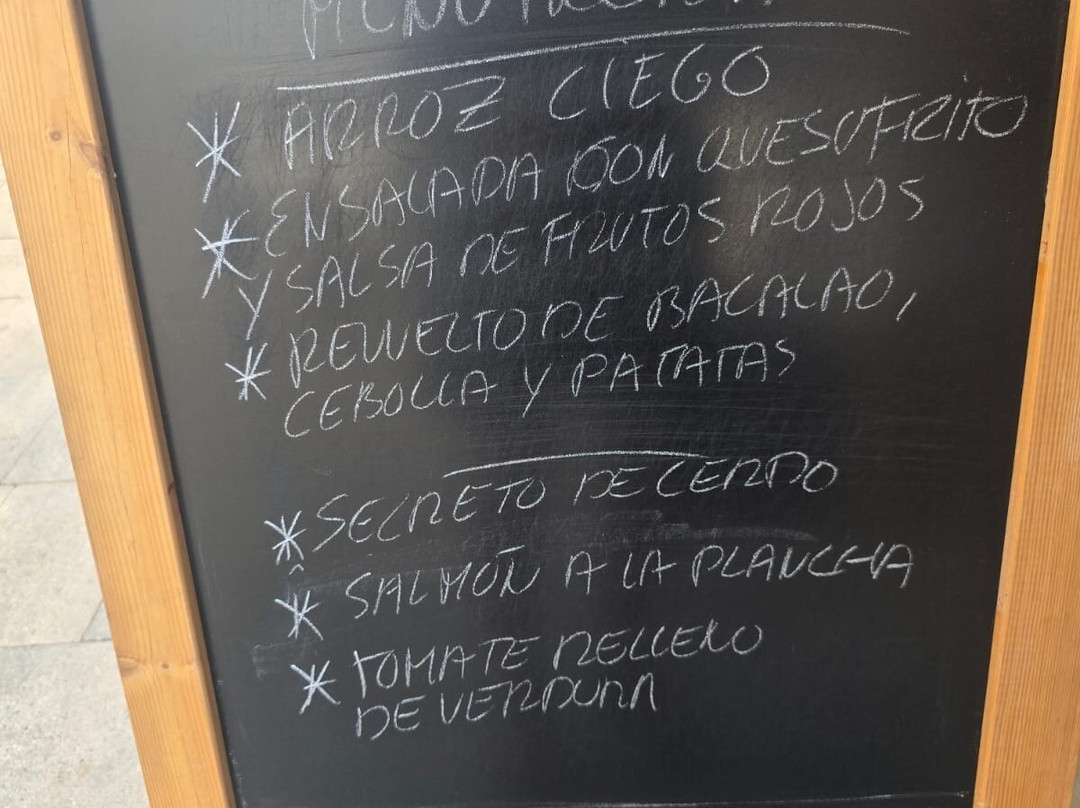 MENÚ
* ARROZ CIEGO
* ENSALADA CON QUESO FRITO
Y SALSA DE FRUTOS ROJOS
* REVUELTO DE BACALAO,
CEBOLLA Y PATATAS
* SECRETO DE CERDO
* SALMÓN A LA PLANCHA
* TOMATE RELLENO
DE VERDURA